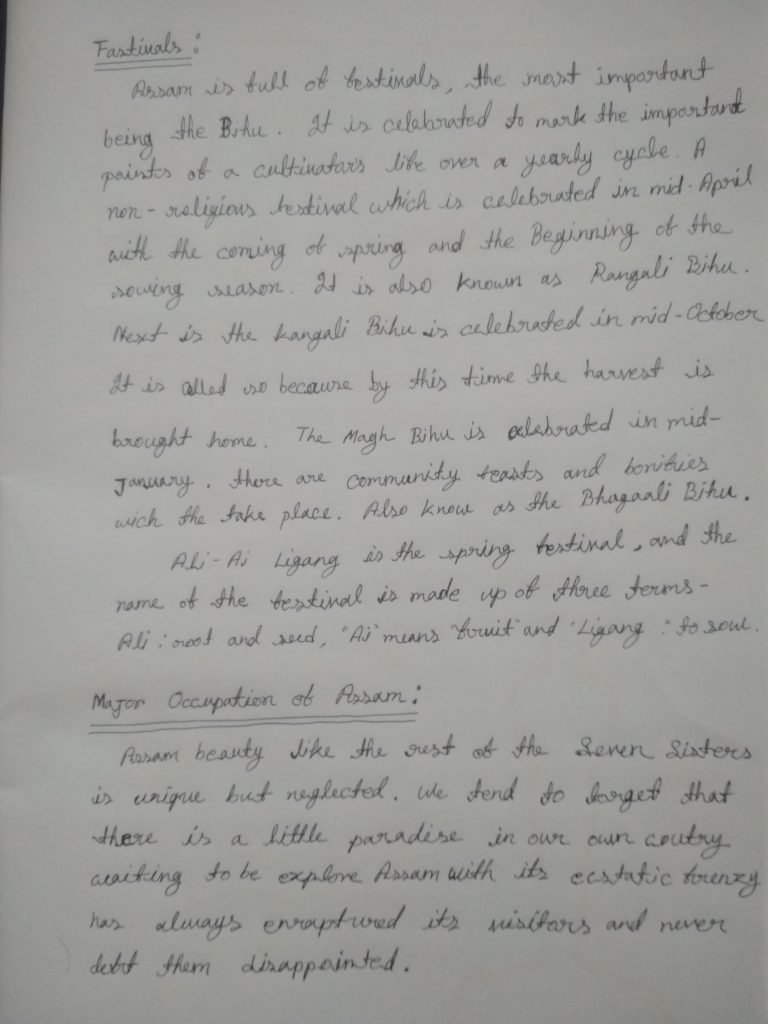 Fastivals :
Assam is full of festivals, the most important
being the Bihu. It is celebrated to mark the important
points of a cultivators life over a yearly cycle. A
non-religious festival which is celebrated in mid-April
with the coming of spring and the Beginning of the
sowing season. It is also known as Rangali Bihu.
Next is the kangali Bihu is celebrated in mid-October
It is alled so because by this time the harvest is
brought home. The Magh Bihu is celebrated in mid-
January. there are community feasts and bonifies
wich the take place. Also know as the Bhogaali Bihu.
Ali-Ai Ligang is the spring festival, and the
name of the festival is made up of three terms-
Ali : root and seed, "Ai" means "fruit" and 'Ligang : to sow.
Major Occupation of Assam :
Assam beauty like the rest of the Seven Sisters
is unique but neglected. We tend to forget that
there is a little paradise in our own coutry
waiting to be explore Assam with its ecstatic frenzy
has always enraptured its visitors and never
them disappointed.